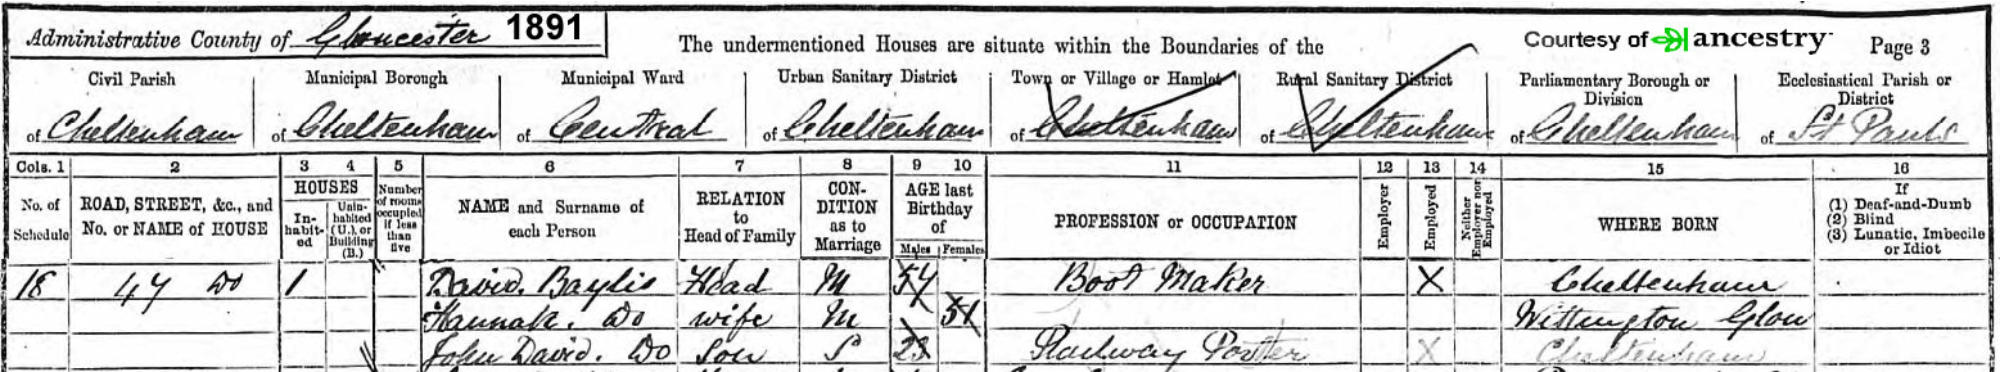 Administrative County of Gloucester 1891
The undermentioned Houses are situate within the Boundaries of the
Courtesy of ancestry
Page 3
Civil Parish
Municipal Borough
Municipal Ward
Urban Sanitary District
Town or Village or Hamlet
Rural Sanitary District
Parliamentary Borough or Division
Ecclesiastical Parish or District
of Cheltenham
of Cheltenham
of Central
of Cheltenham
of Cheltenham
of Cheltenham
of Cheltenham
of St Pauls
Cols. 1 2 3 4 5 6 7 8 9 10 11 12 13 14 15 16
No. of Schedule
ROAD, STREET, &c., and No. or NAME of HOUSE
HOUSES
In-habit-ed
Unin-habited (U.), or Building (B.)
Number of rooms occupied if less than five
NAME and Surname of each Person
RELATION to Head of Family
CON-DITION as to Marriage
AGE last Birthday of
Males Females
PROFESSION or OCCUPATION
Employer
Employed
Neither Employer nor Employed
WHERE BORN
If
(1) Deaf-and-Dumb
(2) Blind
(3) Lunatic, Imbecile or Idiot
18 47 Do 1 David. Baylis Head M 54 Boot Maker X Cheltenham
Hannah. Do wife M 51 Wittington Glou
John David. Do Son S 23 Railway Porter X Cheltenham